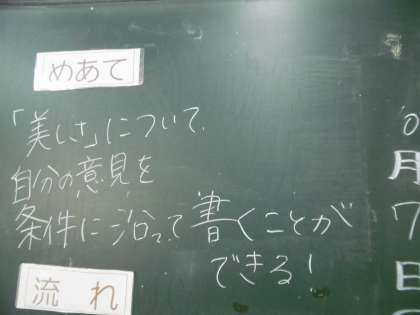 めあて
「美しさ」について、
自分の意見を
条件に沿って書くことが
できる!
流れ
月
7
日